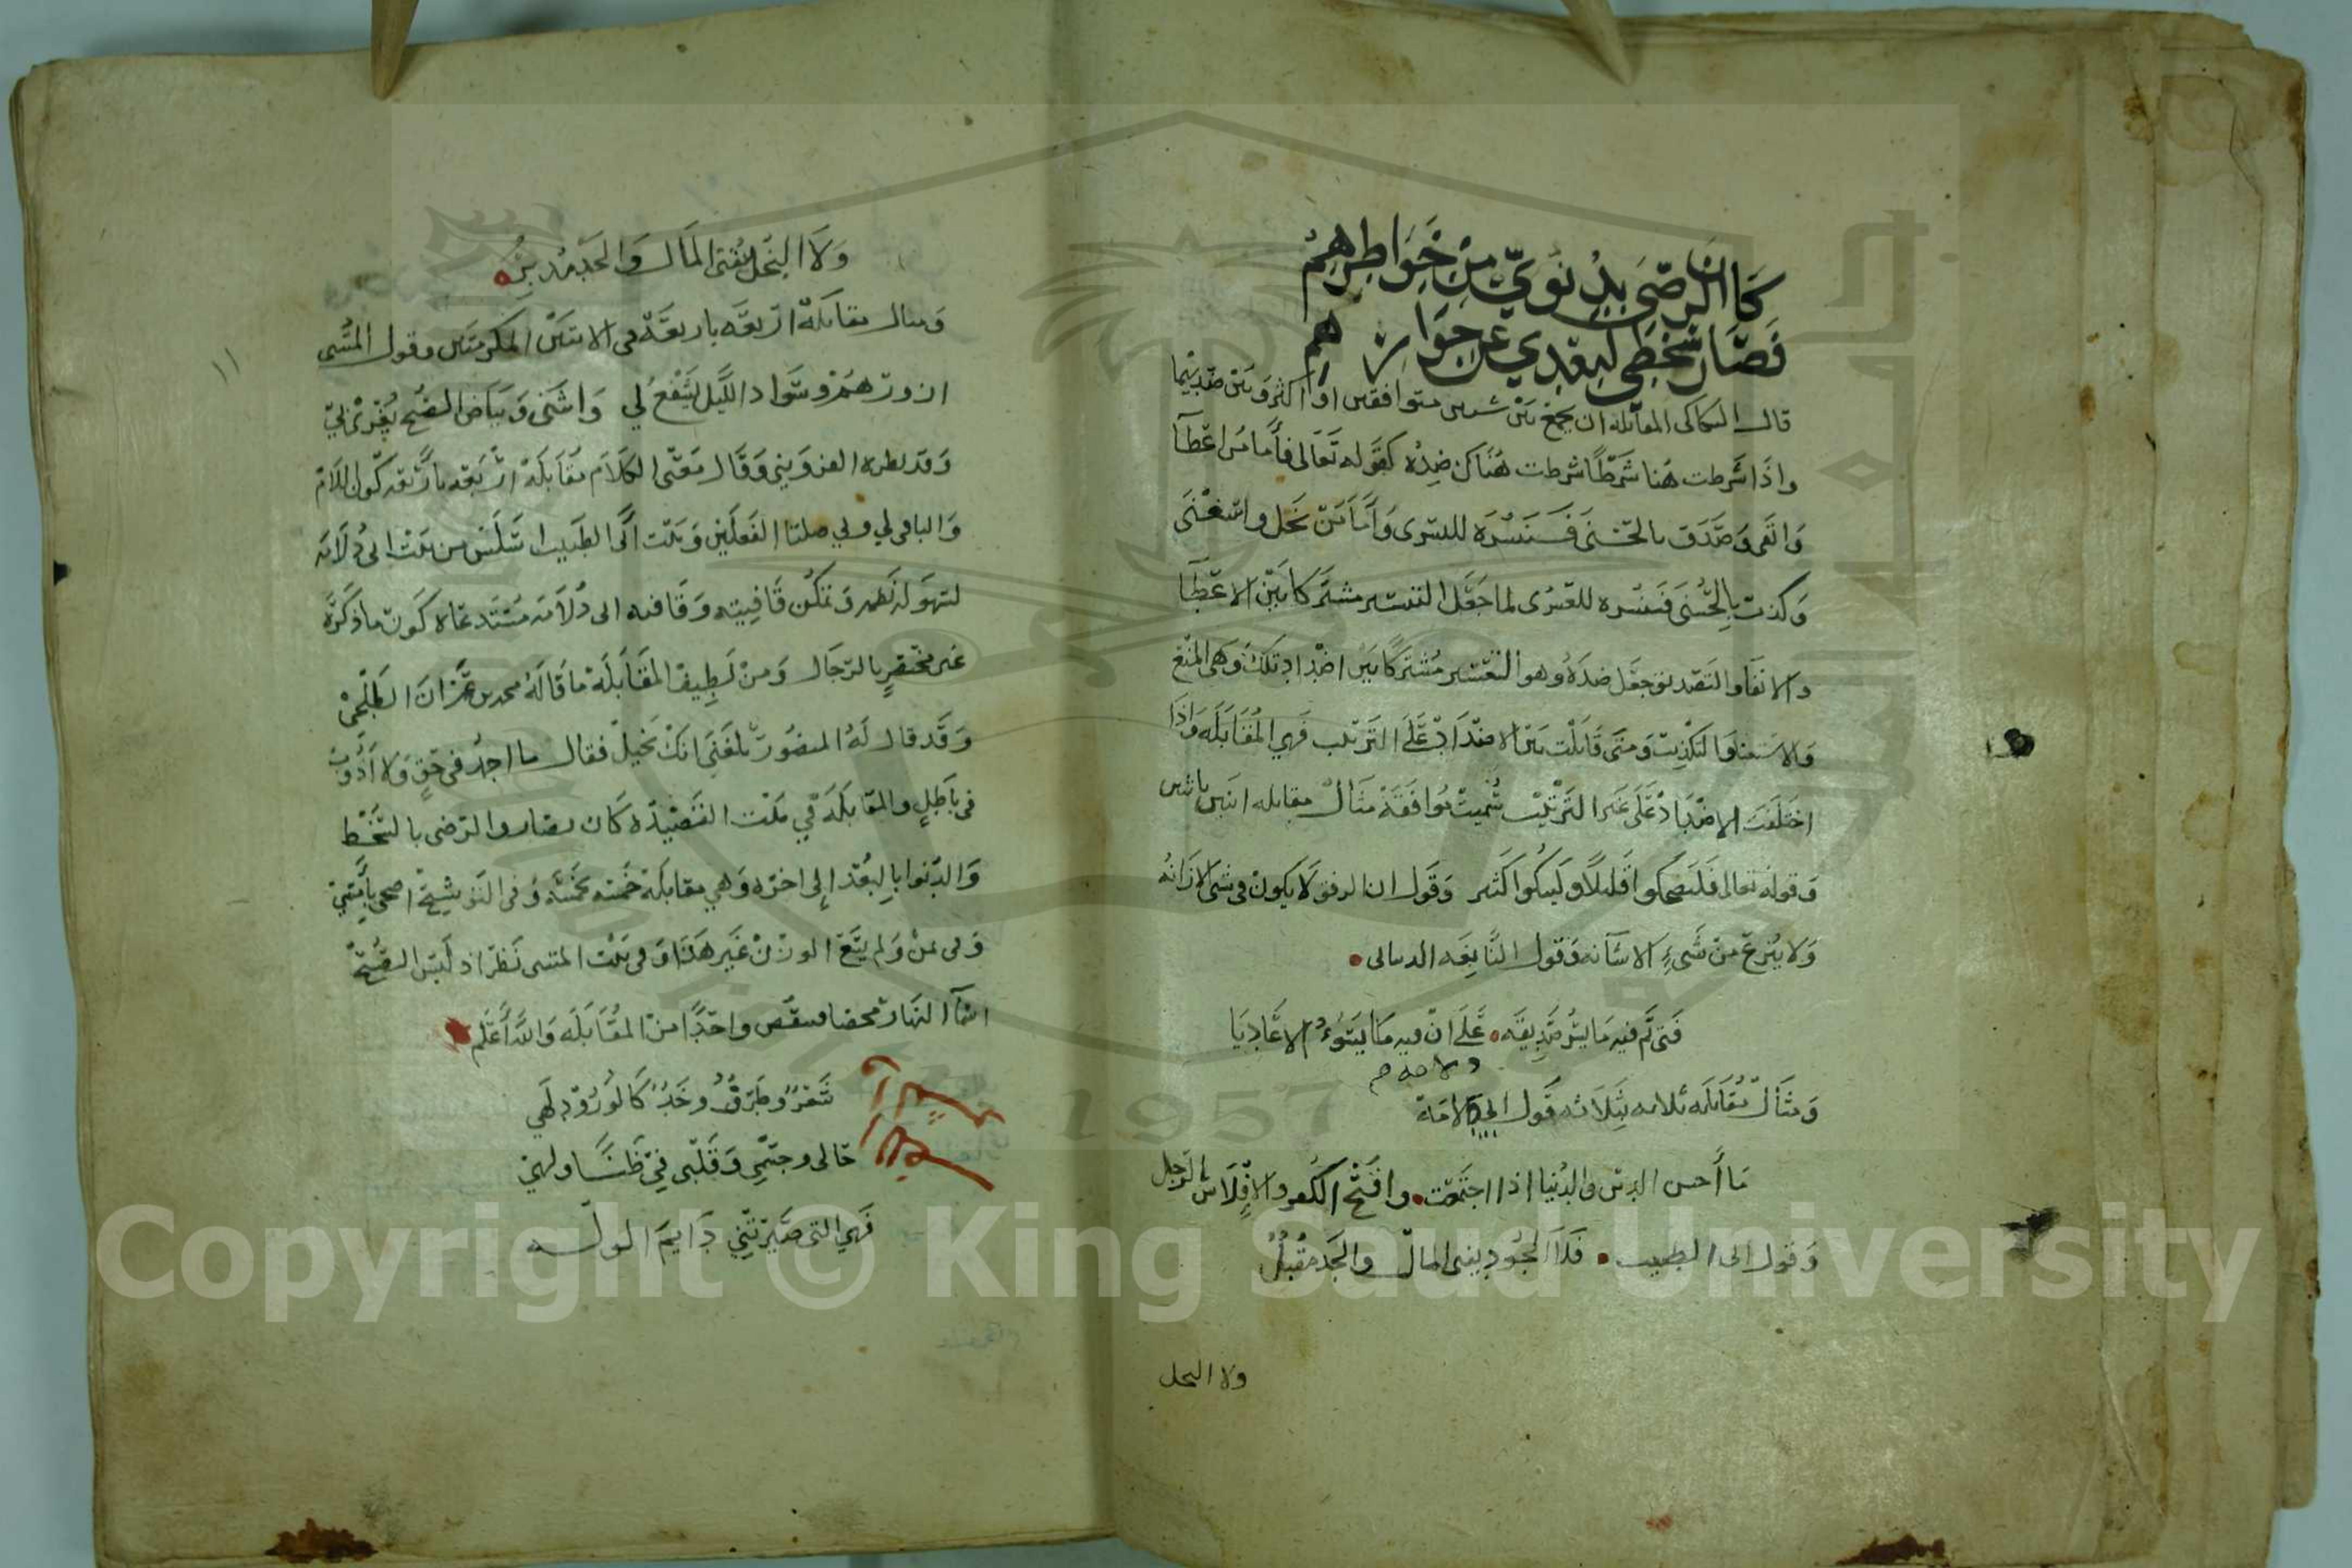 كان الرضى بدنوي من خواطرهم
فصار سخطي لبعدي عن جوارهم
قال السكاكى المقابله ان يجمع بين شيين متوافقين او اكثر وبين ضديهما
واذا شرطت هنا شرطا شرطت هناك ضده كقوله تعالى فأما من اعطا
واتقى وصدق بالحسنى فسنيسره لليسرى وأما من بخل واستغنى
وكذب بالحسنى فسنيسره للعسرى لما جعل التيسير مشتركا بين الاعطا
والاتقا والتصديق جعل ضده وهو التعسير مشتركا بين اضداد تلك وهى المنع
والاستغنا والتكذيب ومتى قابلت بين الاضداد على الترتيب فهي المقابله واذا
اختلفت الاضداد على غير الترتيب سميت موافقة مثال مقابله اثنين باثنين
وقوله تعالى فليضحكوا قليلا وليبكوا كثير وقول ان الرفق لا يكون فى شى الا زانه
ولا ينزع من شيء الا شانه وقول النابغه الدبيانى
فتى تم فيه ما يسر صديقه على ان فيه ما يسوء الاعاديا
ومثال مقابله ثلاثه بثلاثه قول ابي دلامة
ما أحسن الدين والدنيا اذا اجتمعت واقبح الكفر والافلاس بالرجل
وقول ابى الطيب فلا الجود يفنى المال والجد مقبل
ولا البخل
ولا البخل يبقى المال والجد مدبر
ومثال مقابلة اربعه باربعة فى الايتين الكرمتين وقول المتنبى
ازورهم وسواد الليل يشفع لي واثنى وبياض الصبح يغري بي
وقد نظره القزويني وقال معنى الكلام مقابلة اربعه باربعه كون اللام
والبا فى لي وبي صلتا الفعلين وبيت أبى الطيب اسلس من بيت ابى دلامه
لسهولة نظمه وتمكن قافيته وقافيه ابى دلامه مستدعاه كون ما ذكره
غير مختص بالرجال ومن لطيف المقابلة ما قاله محمد بن عمران الطلحى
وقد قال له المنصور بلغني انك بخيل فقال ما اجمد فى حق ولا أذوب
فى باطل والمقابلة في بيت القصيده كان بصار والرضى بالسخط
والدنو بالبعد إلى اخره وهي مقابلة خمسه بخمسه وفى التوشيح
وفى عن ولم يتسع الوزن غير هذا وفى بيت المتنبى نظر اذ ليس الصبح
النهار محضا فينقص واحدا من المقابله والله أعلم
ثغر وطرف وخد كالورود لهي
حالى وجسمي وقلبى في ولهي
فهي التى صيرتني دايم الوله
١١
Copyright © King Saud University
1957